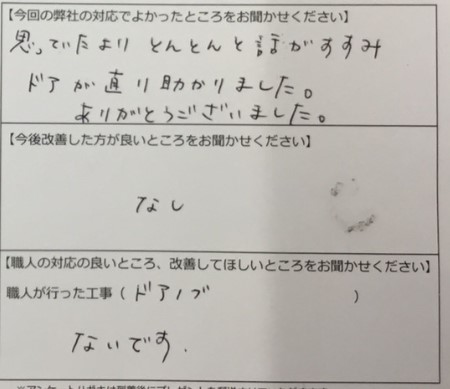 【今回の弊社の対応でよかったところをお聞かせください】
思っていたより とんとんと話がすすみ
ドアが直り助かりました。
ありがとうございました。
【今後改善した方が良いところをお聞かせください】
なし
【職人の対応の良いところ、改善してほしいところをお聞かせください】
職人が行った工事（ドアノブ）
ないです.